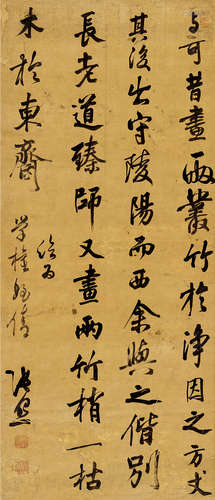 与可昔畫兩叢竹於淨因之方丈
其後出守陵陽而西余與之偕別
長老道臻師又畫兩竹梢一枯
木於東齋
張照